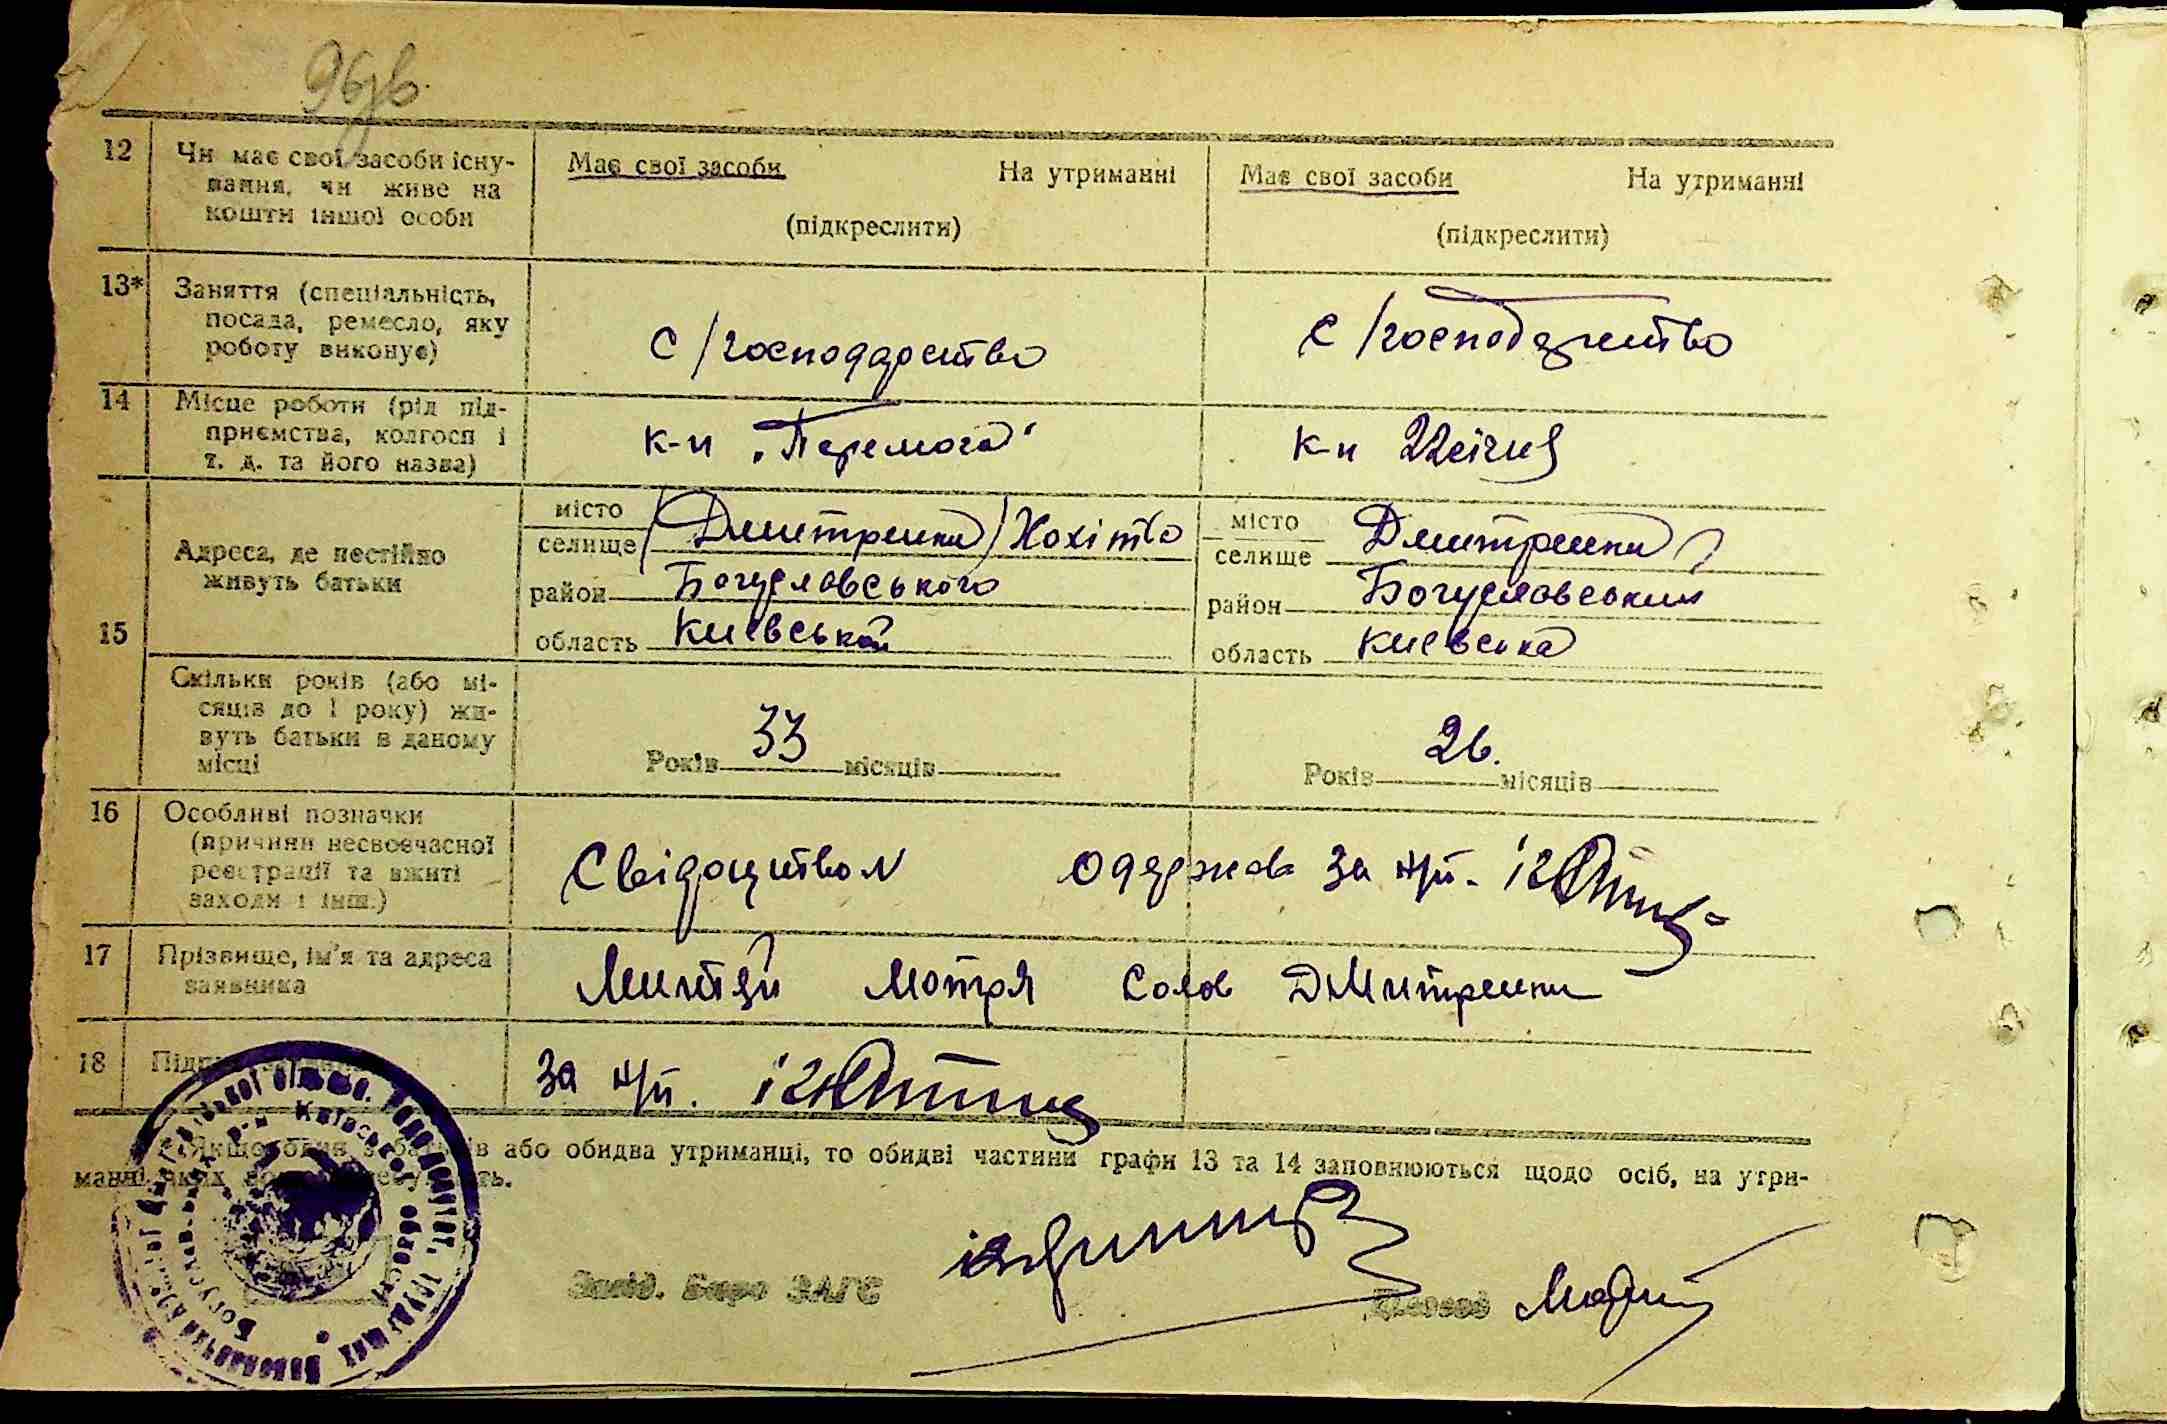 96зв.
12 Чи має свої засоби існу-
вання, чи живе на
кошти іншої особи
Має свої засоби На утриманні
(підкреслити)
Має свої засоби На утриманні
(підкреслити)
13* Заняття (спеціальність,
посада, ремесло, яку
роботу виконує)
с/господарство
с/господарство
14 Місце роботи (рід під-
приємства, колгосп і
т. д. та його назва)
к-п „Перемога"
к-п 22 січня
15 Адреса, де постійно
живуть батьки
місто
селище (Дмитренки) Хохітво
район Богуславського
область Київської
місто
селище Дмитренки
район Богуславський
область Київська
Скільки років (або мі-
сяців до 1 року) жи-
вуть батьки в даному
місці
Років 33 місяців
Років 26. місяців
16 Особливі позначки
(причини несвоєчасної
реєстрації та вжиті
заходи і інш.)
Свідоцтвом одержав за н/п.
17 Прізвище, ім'я та адреса
заявника
Мотря Дмитренки
18
за н/п.
* Якщо один з батьків або обидва утриманці, то обидві частини графи 13 та 14 заповнюються щодо осіб, на утри-
манні яких
Завід. Бюро ЗАГС
Діловод